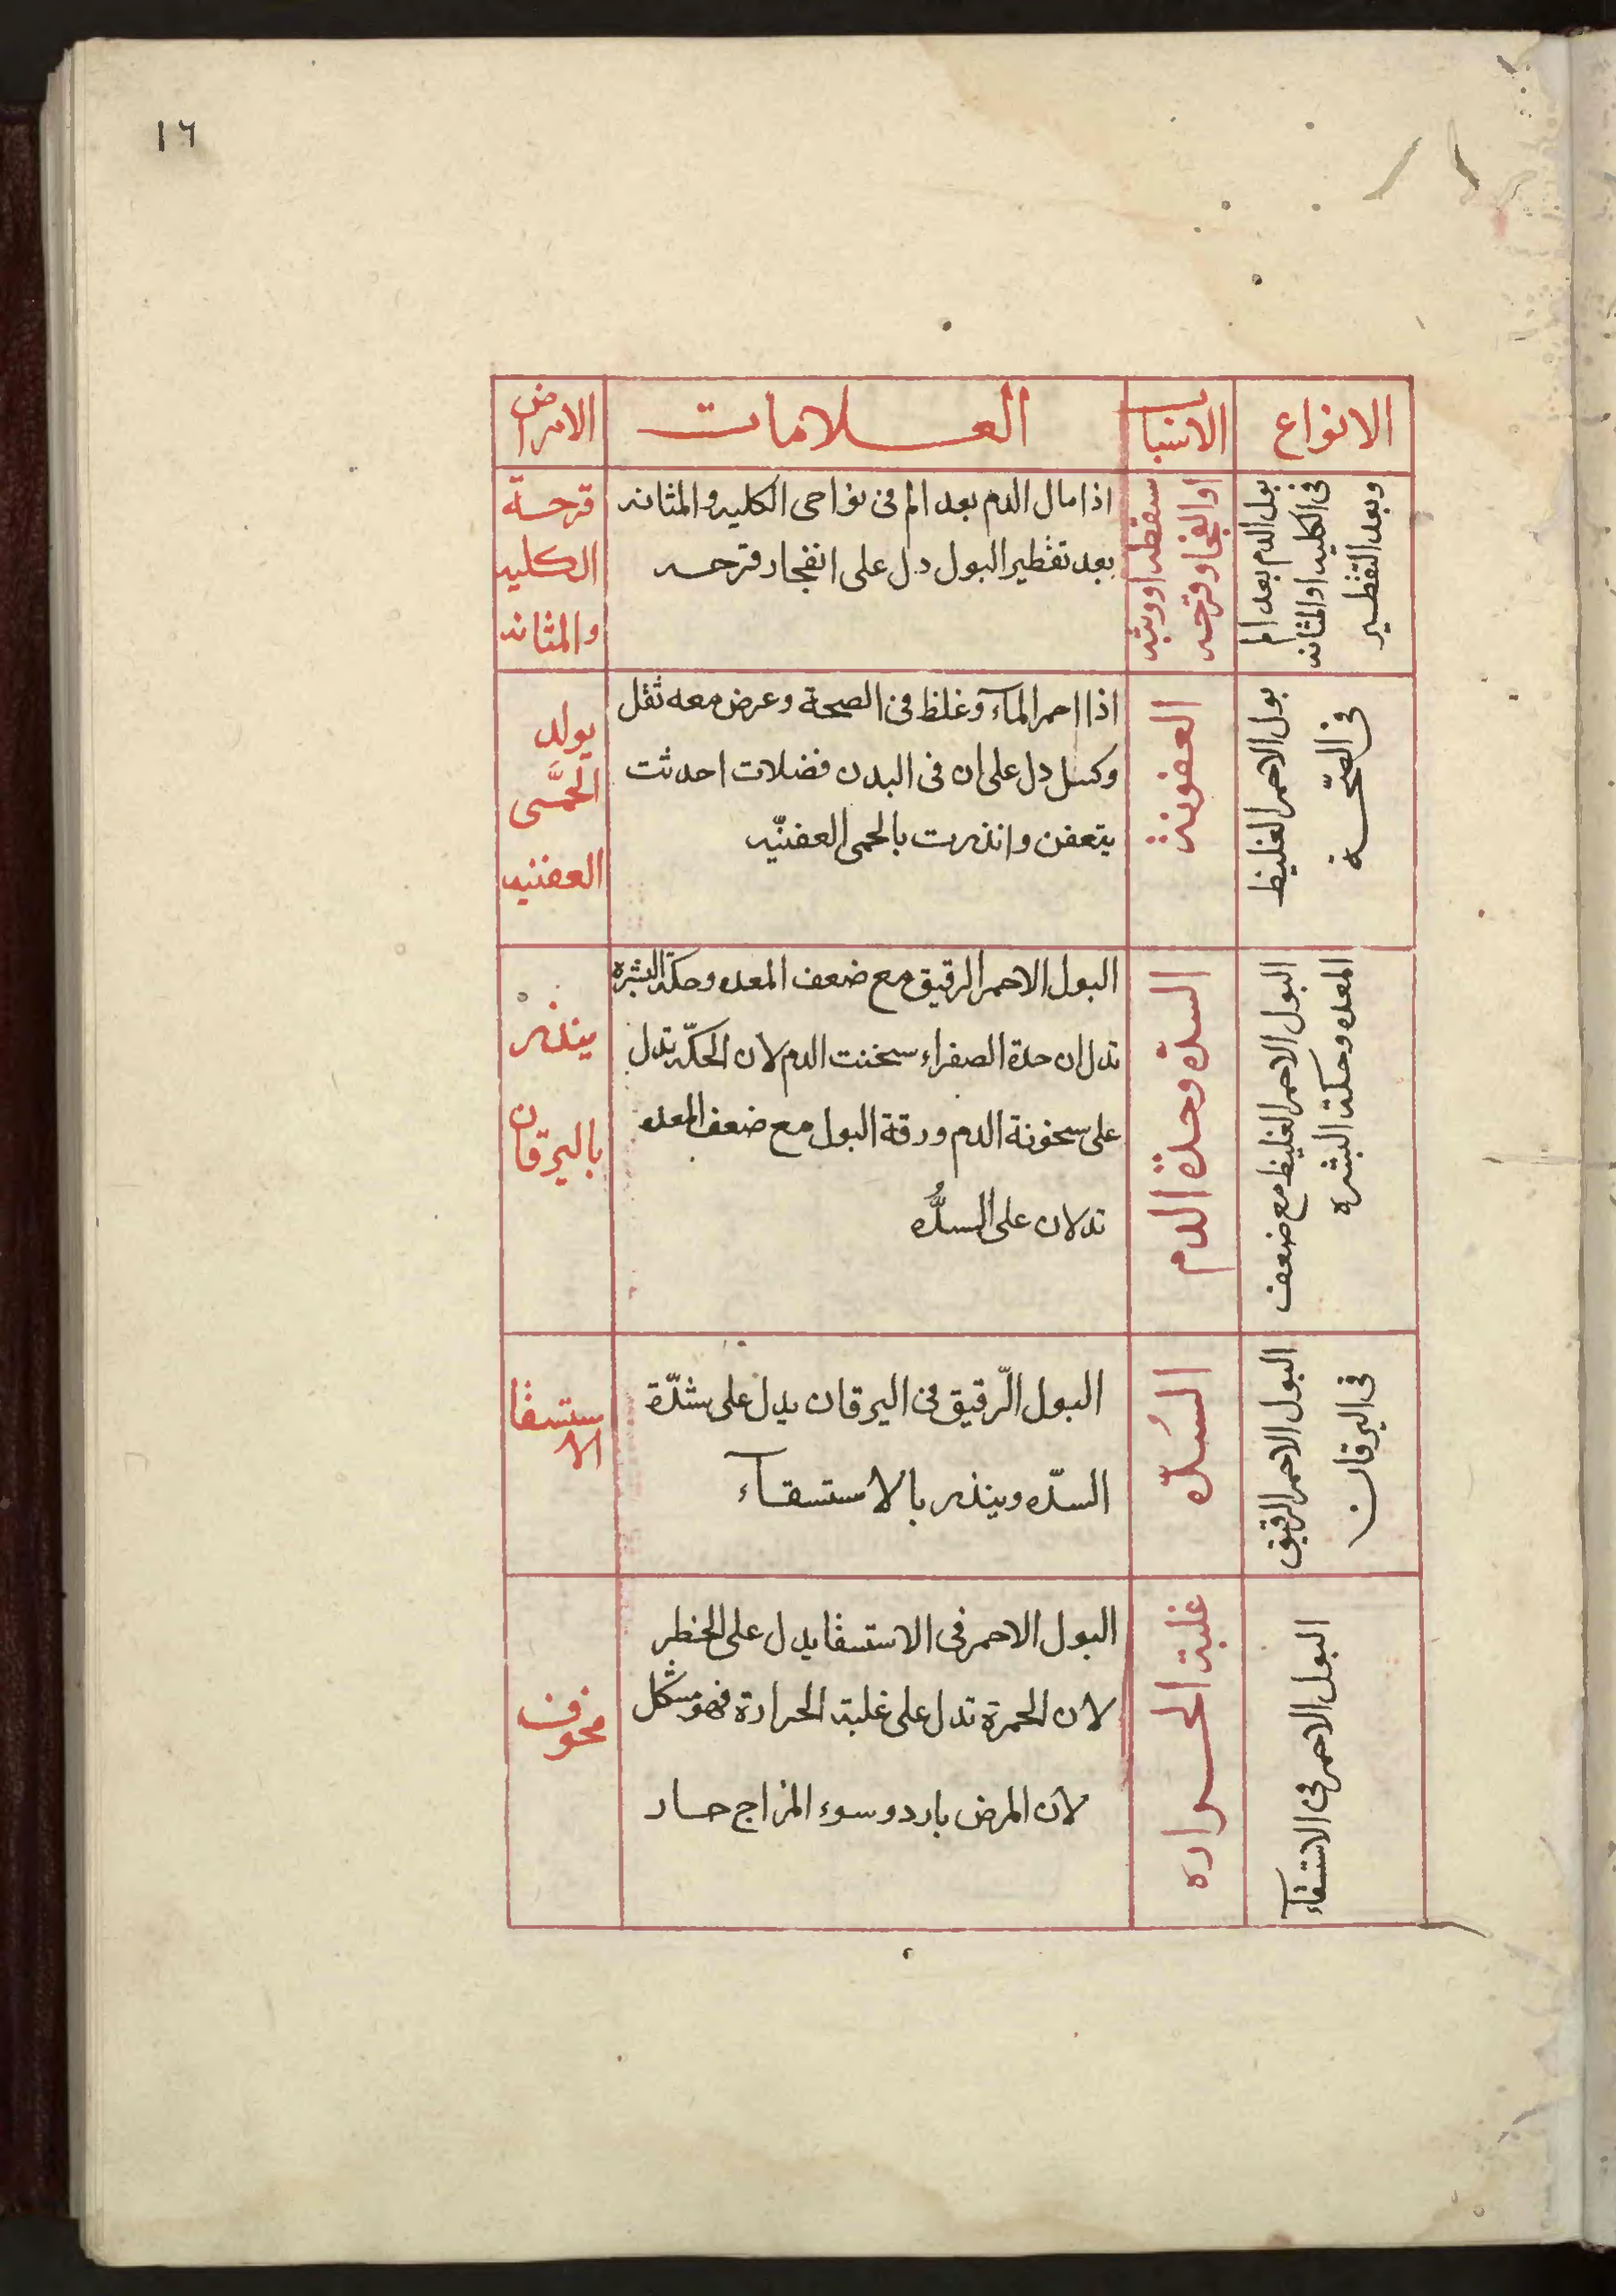 ١٦
الانواع
الاسباب
العلامات
الامراض
بول الدم بعد الم
فى الكليه او المثانه
وبعد التقطير
سقطه او وثبه
او انفجار قرحه
اذا مال الدم بعد الم فى نواحى الكليه والمثانه
بعد تقطير البول دل على انفجار قرحه
قرحة
الكليه
والمثانه
بول الاحمر الغليظ
فى الصّحة
العفونة
اذا احمر المآء وغلظ فى الصحة وعرض معه ثقل
وكسل دل على ان فى البدن فضلات احدثت
يتعفن وانذرت بالحمى العفنيّه
يولد
الحمَّى
العفنيه
البول الاحمر الغليظ مع ضعف
المعده وحكة البشره
السدّه وحدة الدم
البول الاحمر الرقيق مع ضعف المعده وحكة البشره
تدل ان حدة الصفراء سخنت الدم لان الحكّه تدل
على سخونة الدم ورقة البول مع ضعف المعده
تدلان على السدُّه
ينذر
باليرقان
البول الاحمر الرقيق
فى اليرقان
السُدّه
البول الرّقيق فى اليرقان يدل على شدّة
السدّه وينذر بالاستسقآء
الاستسقا
البول الاحمر فى الاستسقآء
غلبة الحراره
البول الاحمر فى الاستسقا يدل على الخطر
لان الحمرة تدل على غلبة الحرارة فهو مشكل
لان المرض بارد وسوء المزاج حار
مخوف